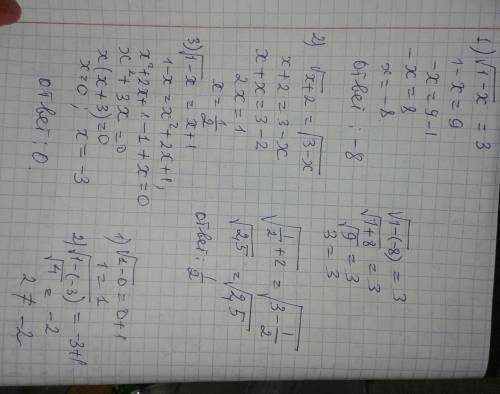 1) √1-x = 3
1-x = 9
-x = 9-1
-x = 8
x = -8.
ответ: -8
√1-(-8) = 3
√1+8 = 3
√9 = 3
3 = 3
2) √x+2 = √3-x
x+2 = 3-x
x+x = 3-2
2x = 1
x = 1/2
√1/2+2 = √3-1/2
√2,5 = √2,5
ответ: 1/2
3) √1-x = x+1
1-x = x²+2x+1,
x²+2x+1-1+x=0
x²+3x=0
x(x+3)=0
x=0, x=-3
ответ: 0.
1) √1-0 = 0+1
1=1
2) √1-(-3) = -3+1
√4 = -2
2 ≠ -2